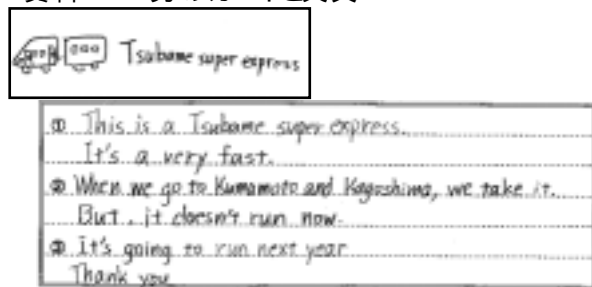 Tsubame super express
① This is a Tsubame super express.
It's a very fast.
② When we go to Kumamoto and Kagoshima, we take it.
But, it doesn't run now.
③ It's going to run next year
Thank you